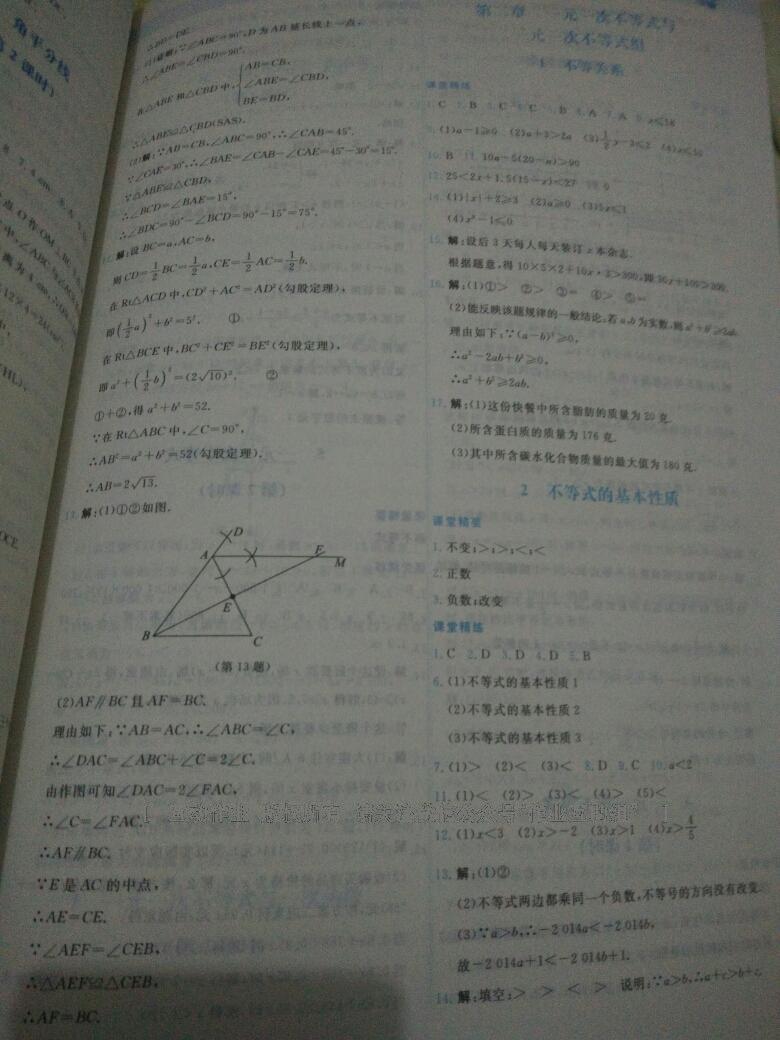 角平分线
第2课时)
∴BD=DE.
∠ABC=90°,D为AB延长线上一点,
∴∠ABE=∠CBD=90°.
在△ABE和△CBD中,
AB=CB,
∠ABE=∠CBD,
BE=BD,
∴△ABE≌△CBD(SAS).
(2)解:∵AB=CB,∠ABC=90°,∴∠CAB=45°.
∵∠CAE=30°,∴∠BAE=∠CAB-∠CAE=45°-30°=15°.
∵△ABE≌△CBD,
∴∠BCD=∠BAE=15°,
∴∠BDC=90°-∠BCD=90°-15°=75°.
12.解:设BC=a,AC=b,
则CD=1/2BC=1/2a,CE=1/2AC=1/2b.
在Rt△ACD中,CD²+AC²=AD²(勾股定理),
即(1/2a)²+b²=5². ①
在Rt△BCE中,BC²+CE²=BE²(勾股定理),
即a²+(1/2b)²=(2√10)². ②
①+②,得a²+b²=52.
∵在Rt△ABC中,∠C=90°,
∴AB²=a²+b²=52(勾股定理).
∴AB=2√13.
13.解:(1)①②如图.
D
A
F
M
E
B
C
(第13题)
(2)AF∥BC且AF=BC.
理由如下:∵AB=AC,∴∠ABC=∠C,
∴∠DAC=∠ABC+∠C=2∠C,
由作图可知∠DAC=2∠FAC,
∴∠C=∠FAC,
∴AF∥BC.
∵E是AC的中点,
∴AE=CE.
∵∠AEF=∠CEB,
∴△AEF≌△CEB,
∴AF=BC.
第二章 一元一次不等式与
一元一次不等式组
1 不等关系
课堂精练
9.(1)a-1≥0 (2)a+3>2a
10.B 11.10a-5(20-a)>90
12.25<2x+1.5(15-x)<27
14.(1)|x|+2≥3 (2)a≥0
(4)x²-1≤0
15.解:设后3天每人每天装订x本杂志.
根据题意,得10×5×2+10x·3>300,即30x+100>300.
16.解:(1)①> ②> ③= ④> ⑤=
(2)能反映该题规律的一般结论:若a,b为实数,则a²+b²≥2ab.
理由如下:∵(a-b)²≥0,
∴a²-2ab+b²≥0,
∴a²+b²≥2ab.
17.解:(1)这份快餐中所含脂肪的质量为20克.
(2)所含蛋白质的质量为176克.
(3)其中所含碳水化合物质量的最大值为180克.
2 不等式的基本性质
课堂精要
1.不变;>;>;<;<
2.正数
3.负数;改变
课堂精练
1.C 2.D 3.D 4.D 5.B
6.(1)不等式的基本性质1
(2)不等式的基本性质2
(3)不等式的基本性质3
7.(1)> (2)< (3)< 8.D 9.C 10.a<2
11.(1)< (2)> (3)< (4)> (5)<
12.(1)x<3 (2)x>-2 (3)x>1 (4)x>4/5
13.解:(1)②
(2)不等式两边都乘同一个负数,不等号的方向没有改变.
(3)∵a>b,∴-2 014a<-2 014b,
故-2 014a+1<-2 014b+1.
14.解:填空:> > < > 说明:∵a>b,∴a+c>b+c,